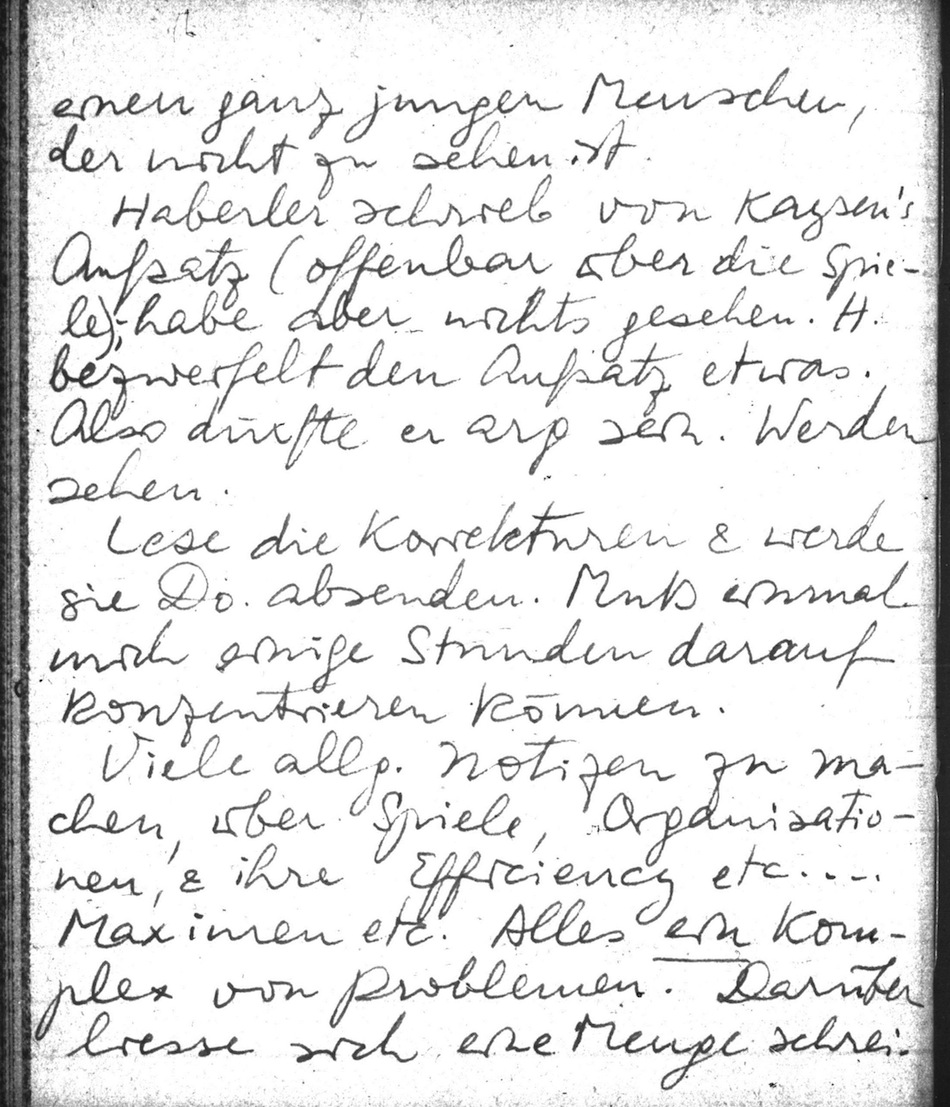 einen ganz jungen Menschen,
der nicht zu sehen ist.
Haberler schrieb von Kaysen's
Aufsatz (offenbar über die Spie-
le); habe aber nichts gesehen. H.
bezweifelt den Aufsatz etwas.
Also dürfte er arg sein. Werden
sehen.
Lese die Korrekturen & werde
sie Do. absenden. Muß einmal
mich einige Stunden darauf
konzentrieren können.
Viele allg. Notizen zu ma-
chen, über Spiele, Organisatio-
nen, & ihre Efficiency etc....
Maximen etc. Alles ein Kom-
plex von Problemen. Darüber
liesse sich eine Menge schrei-